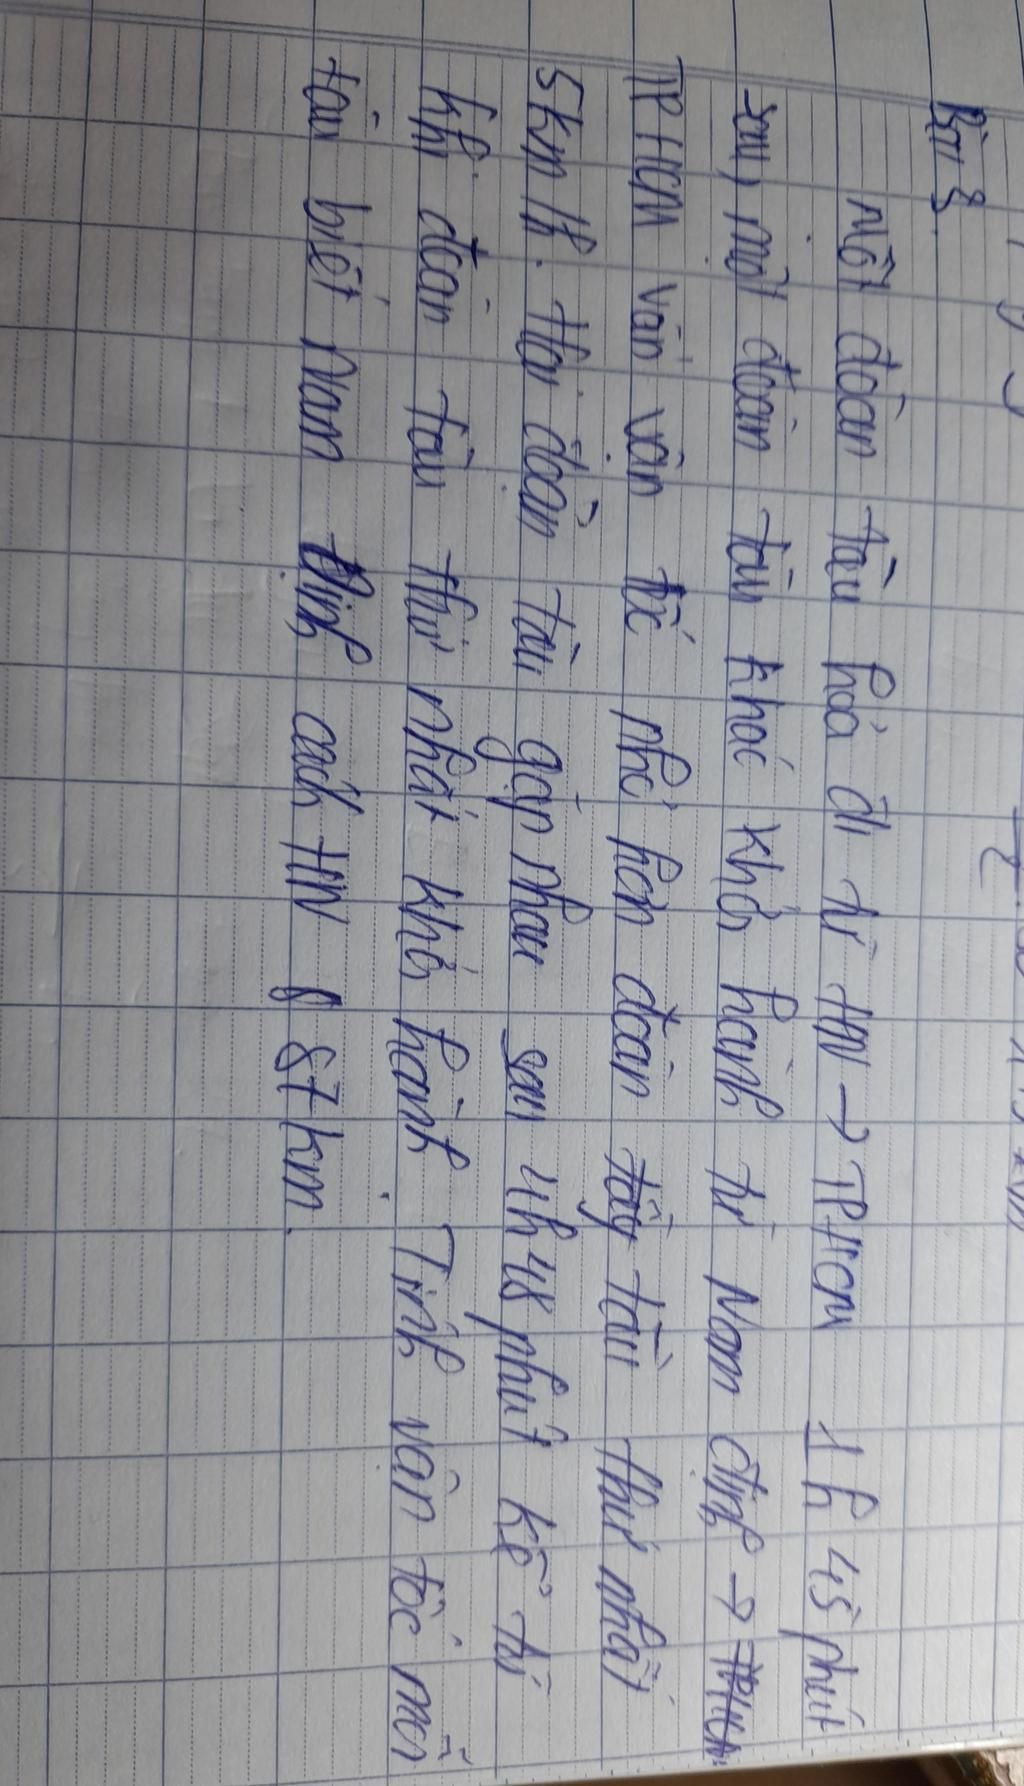 Bài 8.
Một đoàn tàu hỏa đi từ HN → TPHCM 1h 45 phút
sau, một đoàn tàu khác khởi hành từ Nam định →
TPHCM với vận tốc nhỏ hơn đoàn tàu thứ nhất
5km/h. Hai đoàn tàu gặp nhau sau 4h48 phút kể từ
khi đoàn tàu thứ nhất khởi hành. Tính vận tốc mỗi
tàu biết Nam Định cách HN 87km.